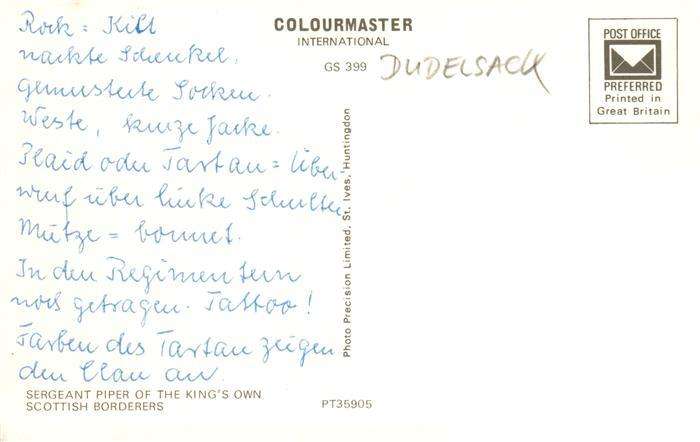 Rock = Kilt
nackte Schenkel.
Gemusterte Socken.
Weste, kurze Jacke.
Plaid oder Tartan = Über-
wurf über linke Schulter
Mütze = bonnet.
In den Regimentern
noch getragen. Tattoo!
Farben des Tartan zeigen
den Clan an.
SERGEANT PIPER OF THE KING'S OWN
SCOTTISH BORDERERS
COLOURMASTER
INTERNATIONAL
GS 399
DUDELSACK
Photo Precision Limited, St. Ives, Huntingdon
PT35905
POST OFFICE
PREFERRED
Printed in
Great Britain